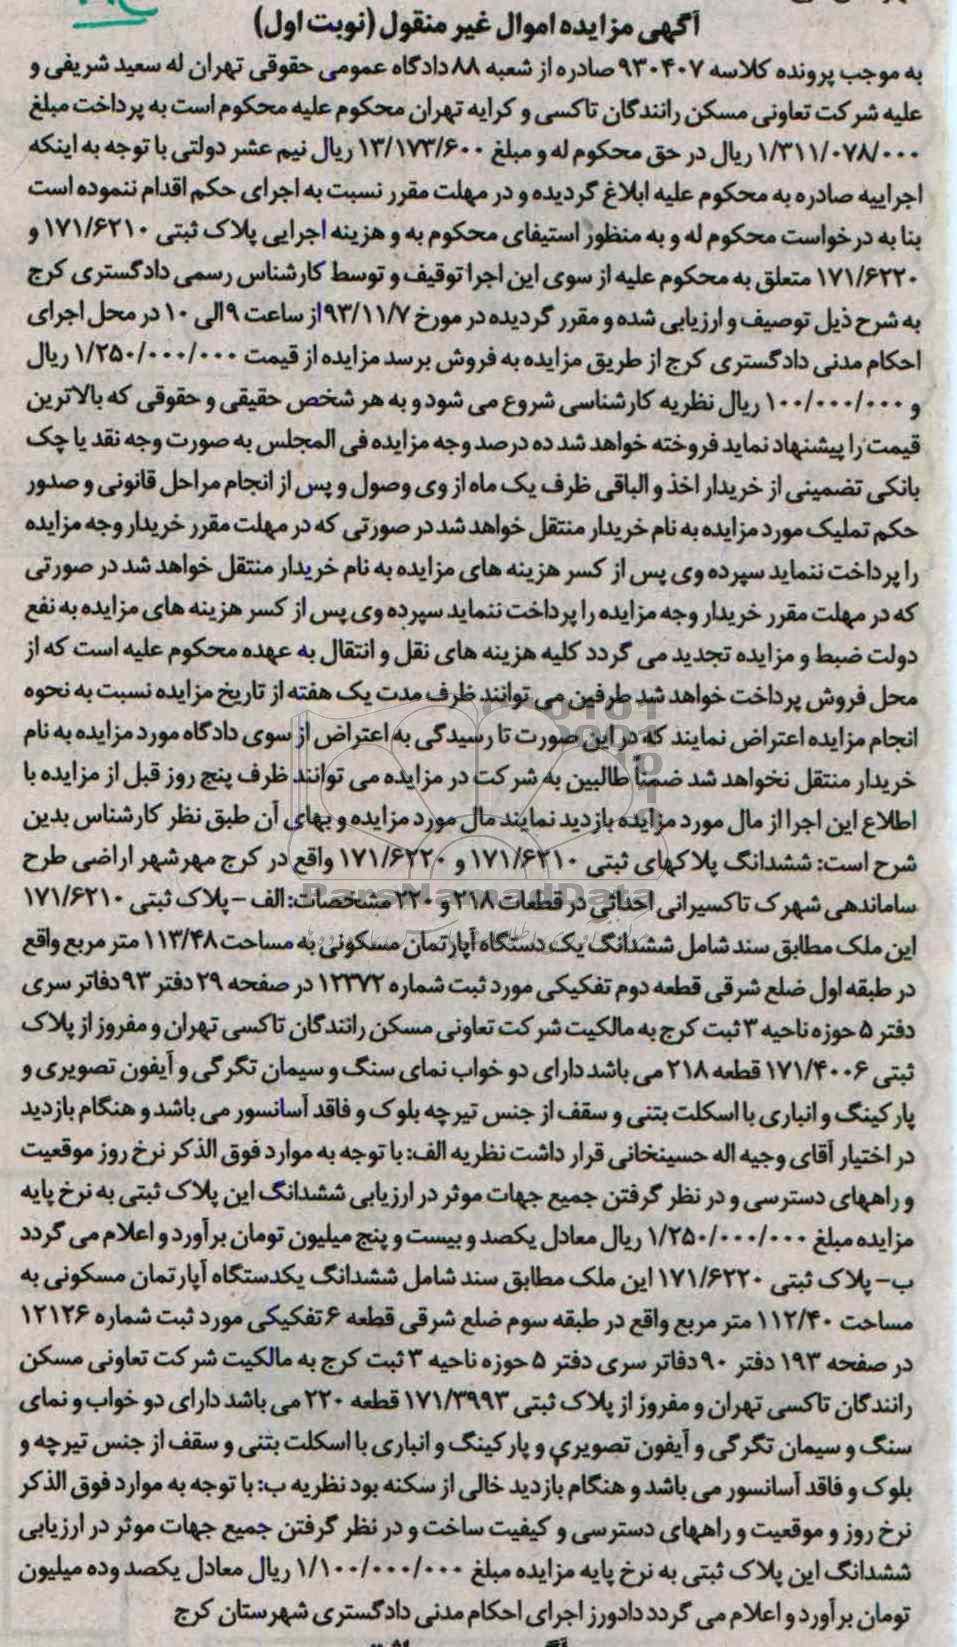 آگهی مزایده اموال غیر منقول (نوبت اول)
به موجب پرونده کلاسه ۹۳۰۴۰۷ صادره از شعبه ۸۸ دادگاه عمومی حقوقی تهران له سعید شریفی و
علیه شرکت تعاونی مسکن رانندگان تاکسی و کرایه تهران محکوم علیه محکوم است به پرداخت مبلغ
۱/۳۱۱/۰۷۸/۰۰۰ ریال در حق محکوم له و مبلغ ۱۳/۱۷۳/۶۰۰ ریال نیم عشر دولتی با توجه به اینکه
اجراییه صادره به محکوم علیه ابلاغ گردیده و در مهلت مقرر نسبت به اجرای حکم اقدام ننموده است
بنا به درخواست محکوم له و به منظور استیفای محکوم به و هزینه اجرایی پلاک ثبتی ۱۷۱/۶۲۱۰ و
۱۷۱/۶۲۲۰ متعلق به محکوم علیه از سوی این اجرا توقیف و توسط کارشناس رسمی دادگستری کرج
به شرح ذیل توصیف و ارزیابی شده و مقرر گردیده در مورخ ۹۳/۱۱/۷ از ساعت ۹ الی ۱۰ در محل اجرای
احکام مدنی دادگستری کرج از طریق مزایده به فروش برسد مزایده از قیمت ۱/۲۵۰/۰۰۰/۰۰۰ ریال
و ۱۰۰/۰۰۰/۰۰۰ ریال نظریه کارشناسی شروع می شود و به هر شخص حقیقی و حقوقی که بالاترین
قیمت را پیشنهاد نماید فروخته خواهد شد ده درصد وجه مزایده فی المجلس به صورت وجه نقد یا چک
بانکی تضمینی از خریدار اخذ و الباقی ظرف یک ماه از وی وصول و پس از انجام مراحل قانونی و صدور
حکم تملیک مورد مزایده به نام خریدار منتقل خواهد شد در صورتی که در مهلت مقرر خریدار وجه مزایده
را پرداخت ننماید سپرده وی پس از کسر هزینه های مزایده به نام خریدار منتقل خواهد شد در صورتی
که در مهلت مقرر خریدار وجه مزایده را پرداخت ننماید سپرده وی پس از کسر هزینه های مزایده به نفع
دولت ضبط و مزایده تجدید می گردد کلیه هزینه های نقل و انتقال به عهده محکوم علیه است که از
محل فروش پرداخت خواهد شد طرفین می توانند ظرف مدت یک هفته از تاریخ مزایده نسبت به نحوه
انجام مزایده اعتراض نمایند که در این صورت تا رسیدگی به اعتراض از سوی دادگاه مورد مزایده به نام
خریدار منتقل نخواهد شد ضمنا طالبین به شرکت در مزایده می توانند ظرف پنج روز قبل از مزایده با
اطلاع این اجرا از مال مورد مزایده بازدید نمایند مال مورد مزایده و بهای آن طبق نظر کارشناس بدین
شرح است: ششدانگ پلاکهای ثبتی ۱۷۱/۶۲۱۰ و ۱۷۱/۶۲۲۰ واقع در کرج مهرشهر اراضی طرح
ParsNamadData
ساماندهی شهرک تاکسیرانی احداثی در قطعات ۲۱۸ و ۲۲۰ مشخصات: الف - پلاک ثبتی ۱۷۱/۶۲۱۰
این ملک مطابق سند شامل ششدانگ یک دستگاه آپارتمان مسکونی به مساحت ۱۱۳/۴۸ متر مربع واقع
در طبقه اول ضلع شرقی قطعه دوم تفکیکی مورد ثبت شماره ۱۲۳۷۲ در صفحه ۲۹ دفتر ۹۳ دفاتر سری
دفتر ۵ حوزه ناحیه ۳ ثبت کرج به مالکیت شرکت تعاونی مسکن رانندگان تاکسی تهران و مفروز از پلاک
ثبتی ۱۷۱/۴۰۰۶ قطعه ۲۱۸ می باشد دارای دو خواب نمای سنگ و سیمان تگرگی و آیفون تصویری و
پارکینگ و انباری با اسکلت بتنی و سقف از جنس تیرچه بلوک و فاقد آسانسور می باشد و هنگام بازدید
در اختیار آقای وجیه اله حسینخانی قرار داشت نظریه الف: با توجه به موارد فوق الذکر نرخ روز موقعیت
و راههای دسترسی و در نظر گرفتن جمیع جهات موثر در ارزیابی ششدانگ این پلاک ثبتی به نرخ پایه
مزایده مبلغ ۱/۲۵۰/۰۰۰/۰۰۰ ریال معادل یکصد و بیست و پنج میلیون تومان برآورد و اعلام می گردد
ب- پلاک ثبتی ۱۷۱/۶۲۲۰ این ملک مطابق سند شامل ششدانگ یکدستگاه آپارتمان مسکونی به
مساحت ۱۱۲/۴۰ متر مربع واقع در طبقه سوم ضلع شرقی قطعه ۶ تفکیکی مورد ثبت شماره ۱۲۱۲۶
در صفحه ۱۹۳ دفتر ۹۰ دفاتر سری دفتر ۵ حوزه ناحیه ۳ ثبت کرج به مالکیت شرکت تعاونی مسکن
رانندگان تاکسی تهران و مفروز از پلاک ثبتی ۱۷۱/۳۹۹۳ قطعه ۲۲۰ می باشد دارای دو خواب و نمای
سنگ و سیمان تگرگی و آیفون تصویری و پارکینگ و انباری با اسکلت بتنی و سقف از جنس تیرچه و
بلوک و فاقد آسانسور می باشد و هنگام بازدید خالی از سکنه بود نظریه ب: با توجه به موارد فوق الذکر
نرخ روز و موقعیت و راههای دسترسی و کیفیت ساخت و در نظر گرفتن جمیع جهات موثر در ارزیابی
ششدانگ این پلاک ثبتی به نرخ پایه مزایده مبلغ ۱/۱۰۰/۰۰۰/۰۰۰ ریال معادل یکصد وده میلیون
تومان برآورد و اعلام می گردد دادورز اجرای احکام مدنی دادگستری شهرستان کرج